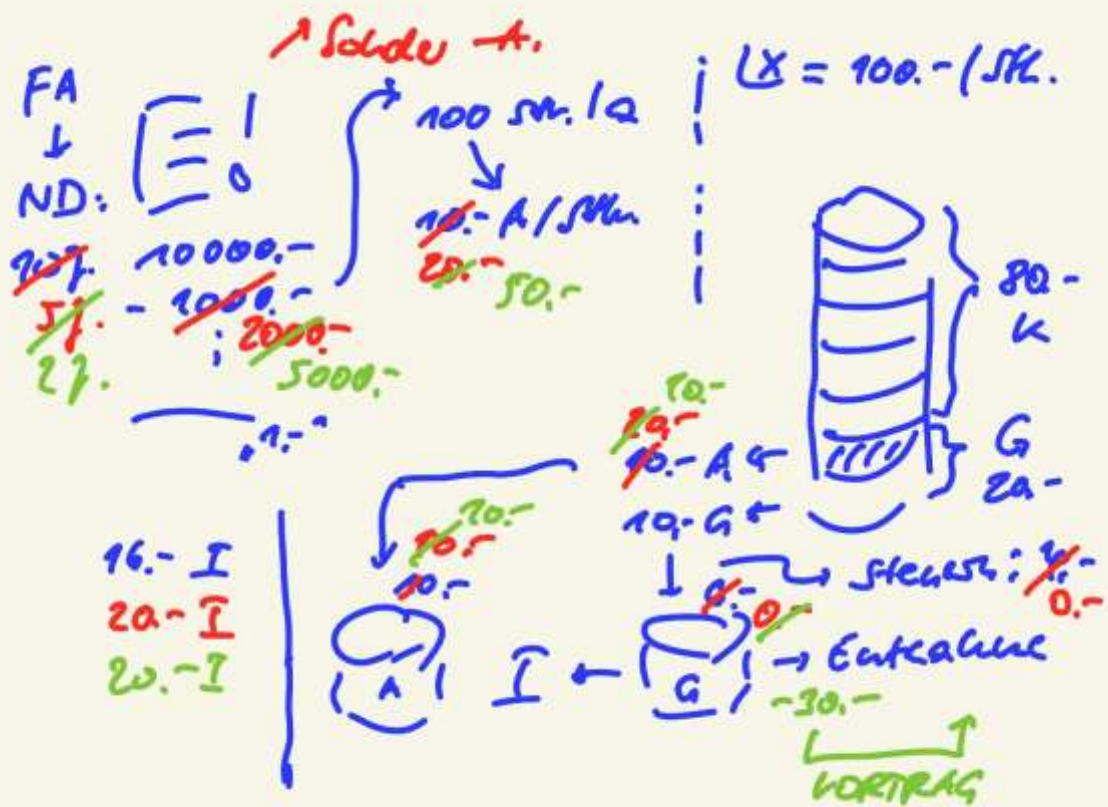 ↗ Sonder-A.
FA
↓
ND:
10 J.
5 J.
2 J.
10000.-
- 1000.-
2000.-
5000.-
"1.-"
100 Stk. / a
10.- A/Stk.
20.-
50.-
LX = 100.-/Stk.
80.-
K
G
20.-
20.-
20.-
10.- A ←
10.- G ←
16.- I
20.- I
20.- I
20.-
20.-
10.-
A
I ←
G
6.-
0.-
→ Steuern: 4.-
0.-
→ Entnahme
-30.-
VORTRAG